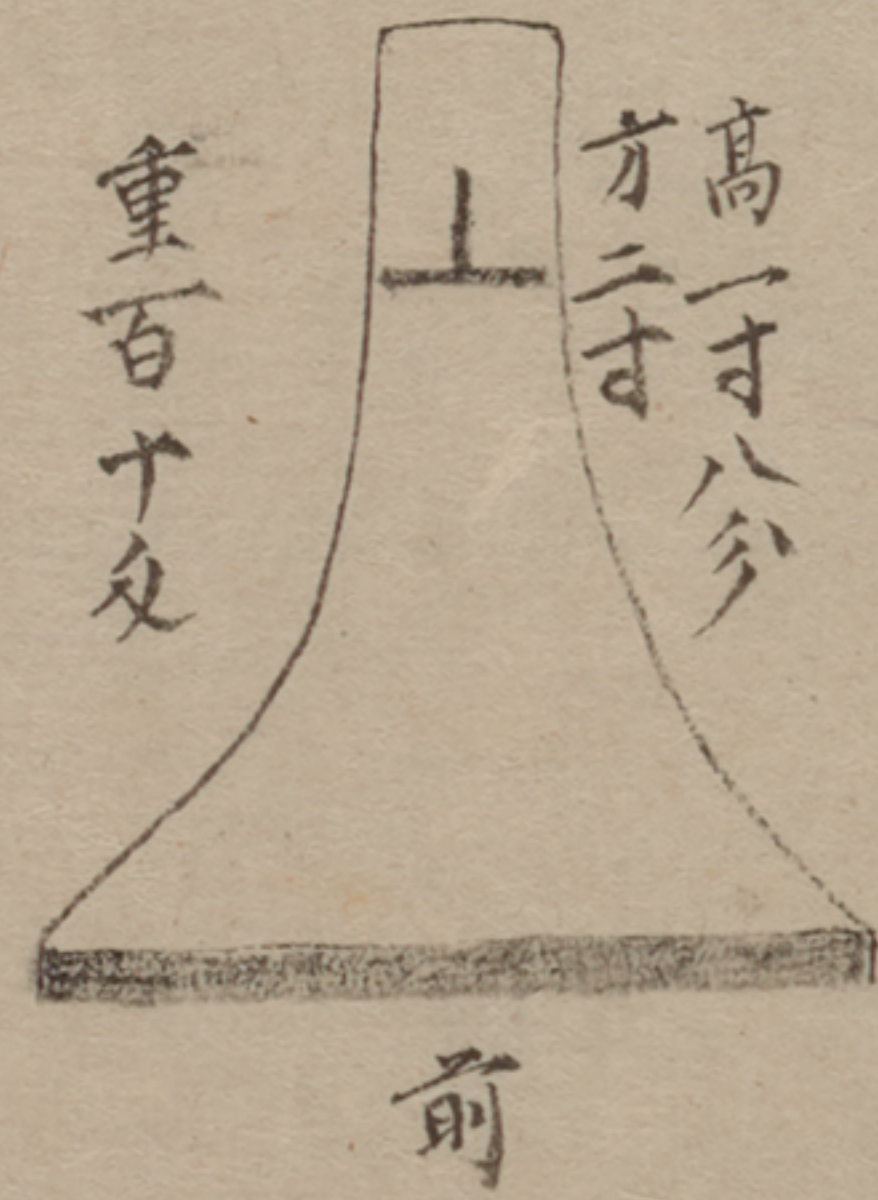 高一寸八分
方二寸
丄
重百十匁
前